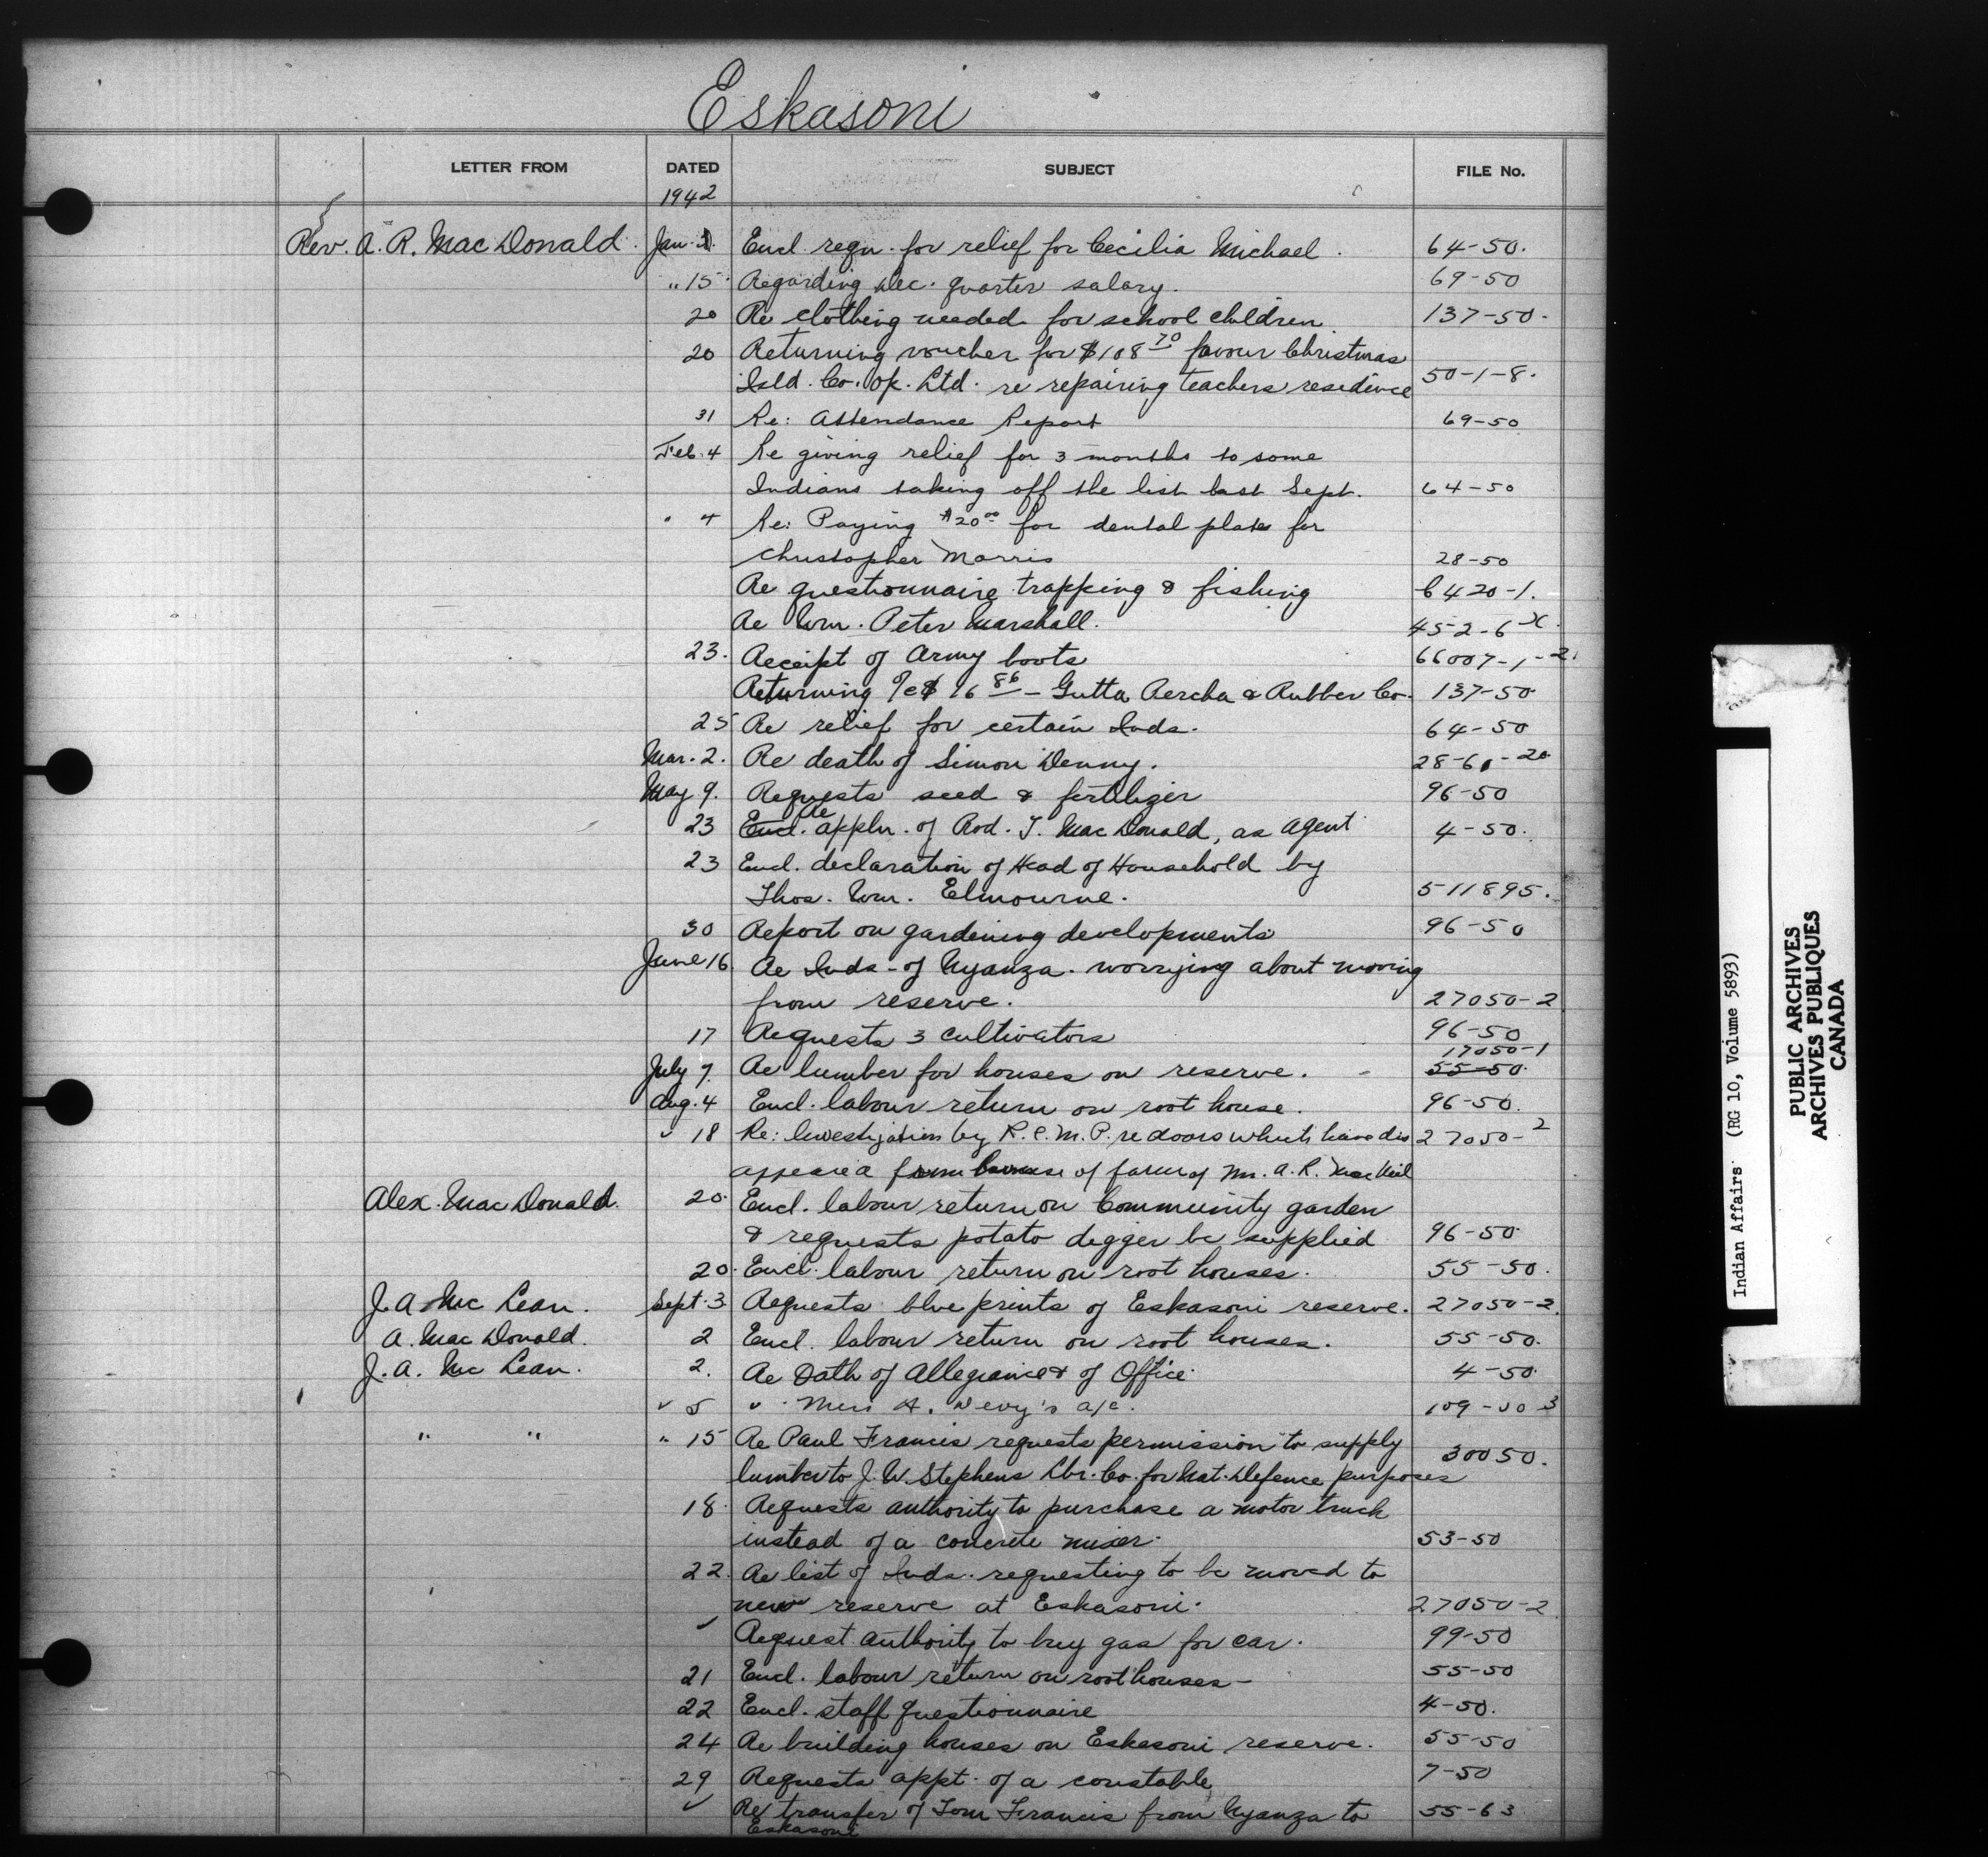 Eskasoni
LETTER FROM DATED SUBJECT FILE No.
1942
Rev. A. R. MacDonald. Jan. Encl. reqn. for relief for Cecilia Michael. 64-50.
" 15 Regarding Dec. quarter salary. 69-50
20 Re clothing needed for school children. 137-50.
20 Returning voucher for $108 70 favour Christmas
Isld. Co. Op. Ltd. re repairing teachers residence 50-1-8.
31 Re: Attendance Report 69-50
Feb. 4 Re giving relief for 3 months to some
Indians taking off the list last Sept. 64-50
" 4 Re: Paying $20 00 for dental plate for
Christopher Morris 28-50
Re questionnaire trapping & fishing 6420-1.
Re Wm. Peter Marshall. 452-6
23. Receipt of Army boots 66007-1-2.
Returning a/c $ 16 86 - Gutta Percha & Rubber Co. 137-50
25 Re relief for certain Inds. 64-50
Mar. 2. Re death of Simon Denny. 28-61-20
May 9. Requests seed & fertilizer 96-50
23 Encl. Re appln. of Rod. J. MacDonald, as Agent 4-50.
23 Encl. declaration of Head of Household by
Thos. Wm. Elmourne. 511895.
30 Report on gardening developments 96-50
June 16 Re Inds - of Nyanza. worrying about moving
from reserve. 27050-2
17 Requests 3 cultivators 96-50
17050-1
July 7. Re lumber for houses on reserve. 55-50.
Aug. 4 Encl. labour return on root house. 96-50.
" 18 Re: Investigation by R.C.M.P. re doors which have dis 27050-2
appeared from house of farm of Mr. A. R. MacNeil
Alex. MacDonald. 20. Encl. labour return on Community garden
& requests potato digger be supplied 96-50
20. Encl. labour return on root houses. 55-50.
J. A. McLean. Sept. 3 Requests blue prints of Eskasoni reserve. 27050-2.
A. MacDonald. 2 Encl. labour return on root houses. 55-50.
J. A. McLean. 2. Re Oath of Allegiance & of Office 4-50.
" 5 " Miss A. a/c. 3
" " " 15 Re Paul Francis requests permission to supply 30050.
lumber to J. W. Stephens Lbr. Co. for Nat. Defence purposes
18. Requests authority to purchase a motor truck
instead of a concrete mixer. 53-50
22. Re list of Inds. requesting to be moved to
new reserve at Eskasoni. 27050-2
" Request authority to buy gas for car. 99-50
21 Encl. labour return on root houses - 55-50
22 Encl. staff questionnaire 4-50.
24 Re building houses on Eskasoni reserve. 55-50
29 Requests appt. of a constable 7-50
" Re transfer of Tom Francis from Nyanza to 55-63
Eskasoni
Indian Affairs (RG 10, Volume 5893)
PUBLIC ARCHIVES
ARCHIVES PUBLIQUES
CANADA